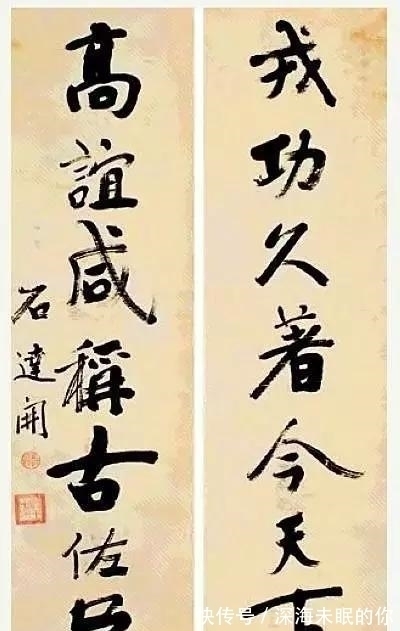 戎功久著今天
高誼咸稱古佐
石達開
快传号/深海未眠的你